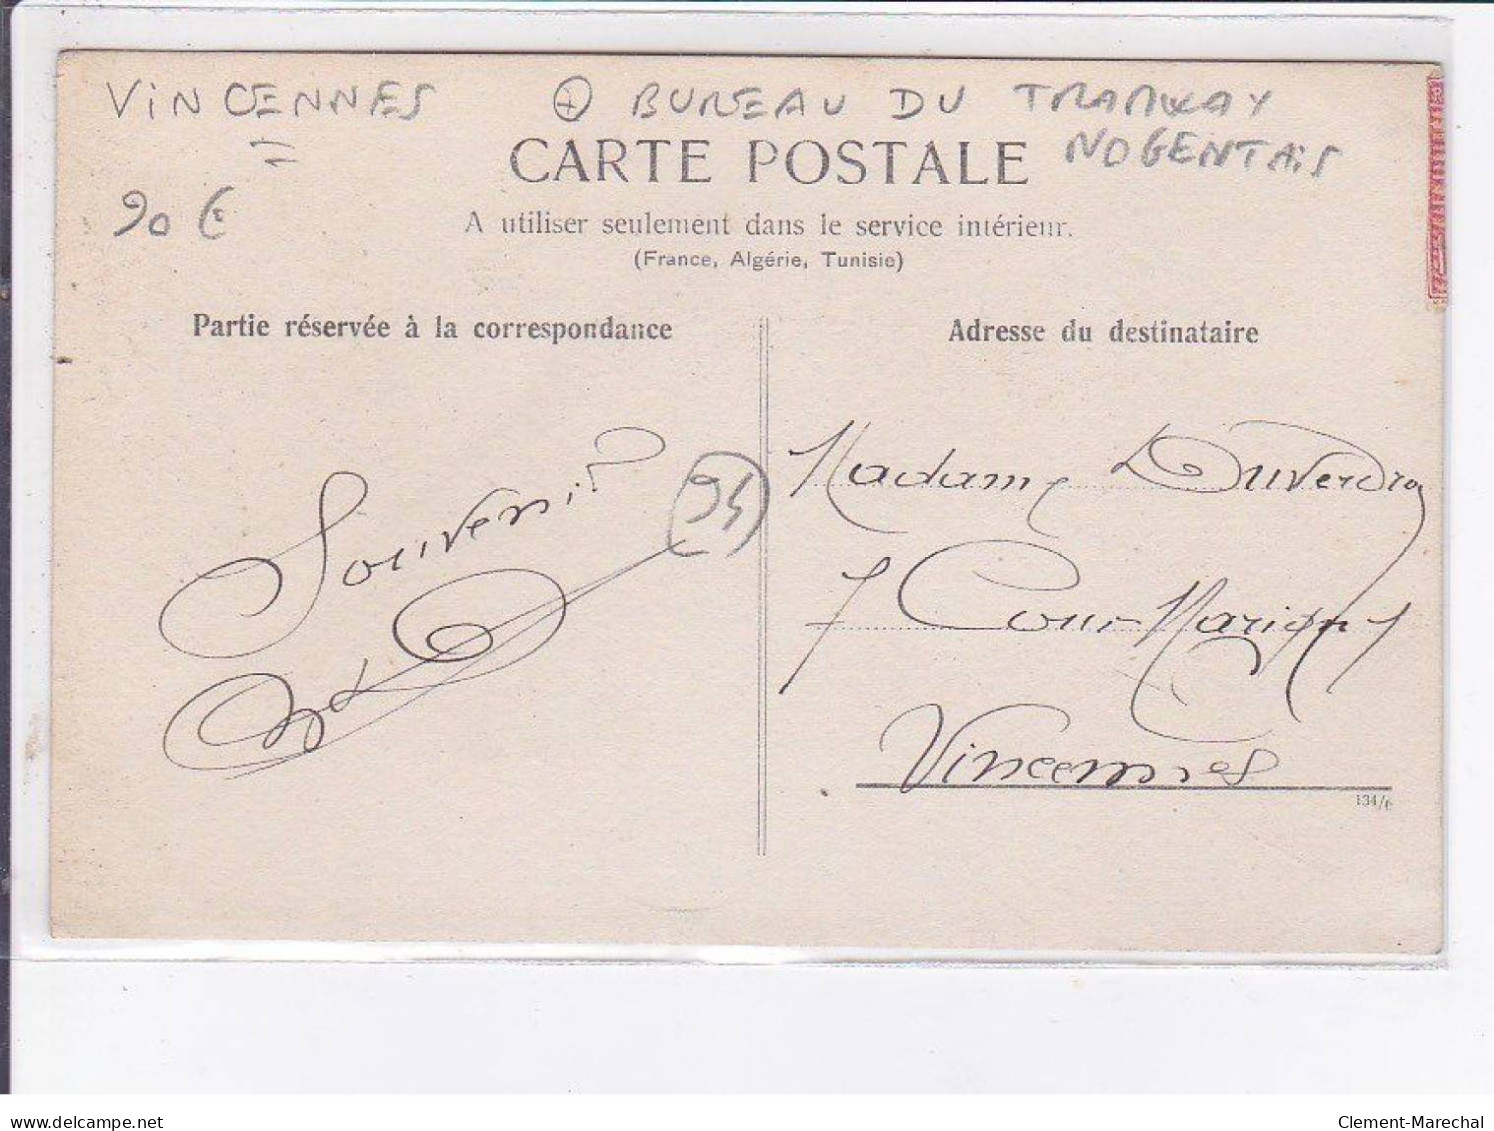 VINCENNES + BUREAU DU TRAMWAY
NOGENTAIS
90 €
CARTE POSTALE
A utiliser seulement dans le service intérieur.
(France, Algérie, Tunisie)
Partie réservée à la correspondance
Adresse du destinataire
Souvenir
94
Madame
7 Cour Marigny
Vincennes
134/6
www.delcampe.net
Clement-Marechal